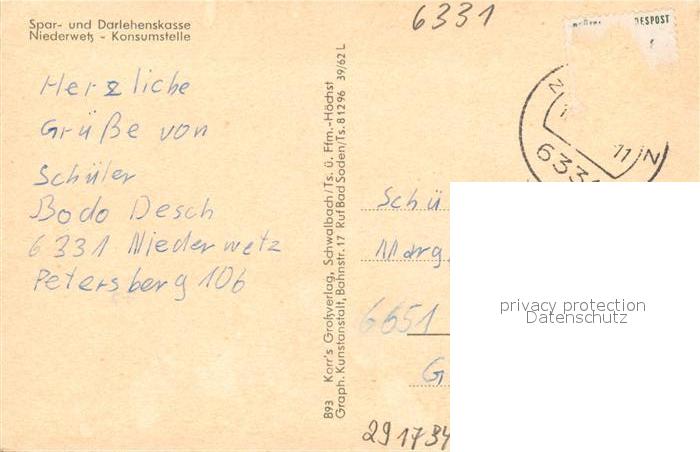 Spar- und Darlehenskasse
Niederwetz - Konsumstelle
6331
DESPOST
Herzliche
Grüße von
Schüler
Bodo Desch
6331 Niederwetz
Petersberg 106
B93 Korr's Großverlag, Schwalbach/Ts. ü. Ffm.-Höchst
Graph. Kunstanstalt, Bahnstr. 17 Ruf Bad Soden/Ts. 81296 39/62 L
11
633
Schü
Marg
6651
G
291734
privacy protection
Datenschutz